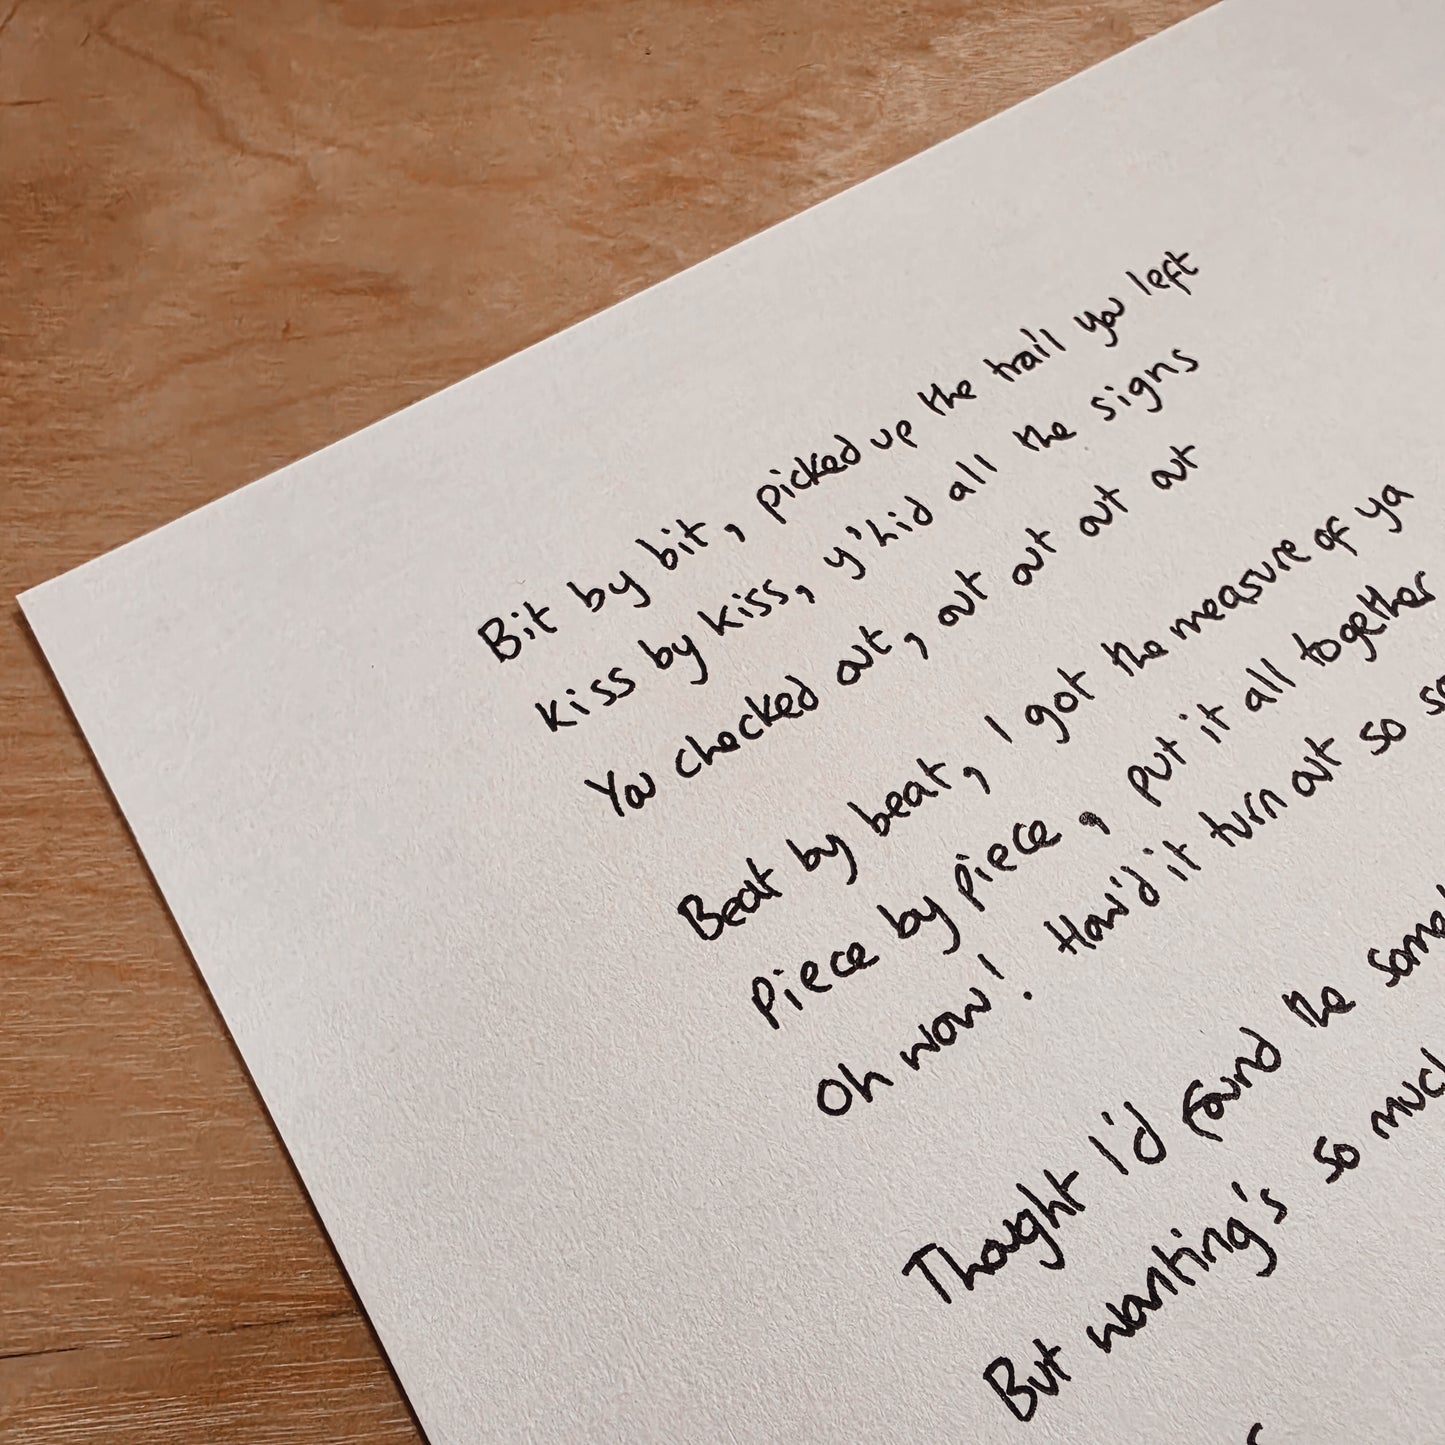 Bit by bit, picked up the trail you left
Kiss by kiss, y'hid all the signs
You checked out, out out out out
Beat by beat, I got the measure of ya
Piece by piece, put it all together
Oh wow! How'd it turn out so
Thought I'd found the
But wanting's so